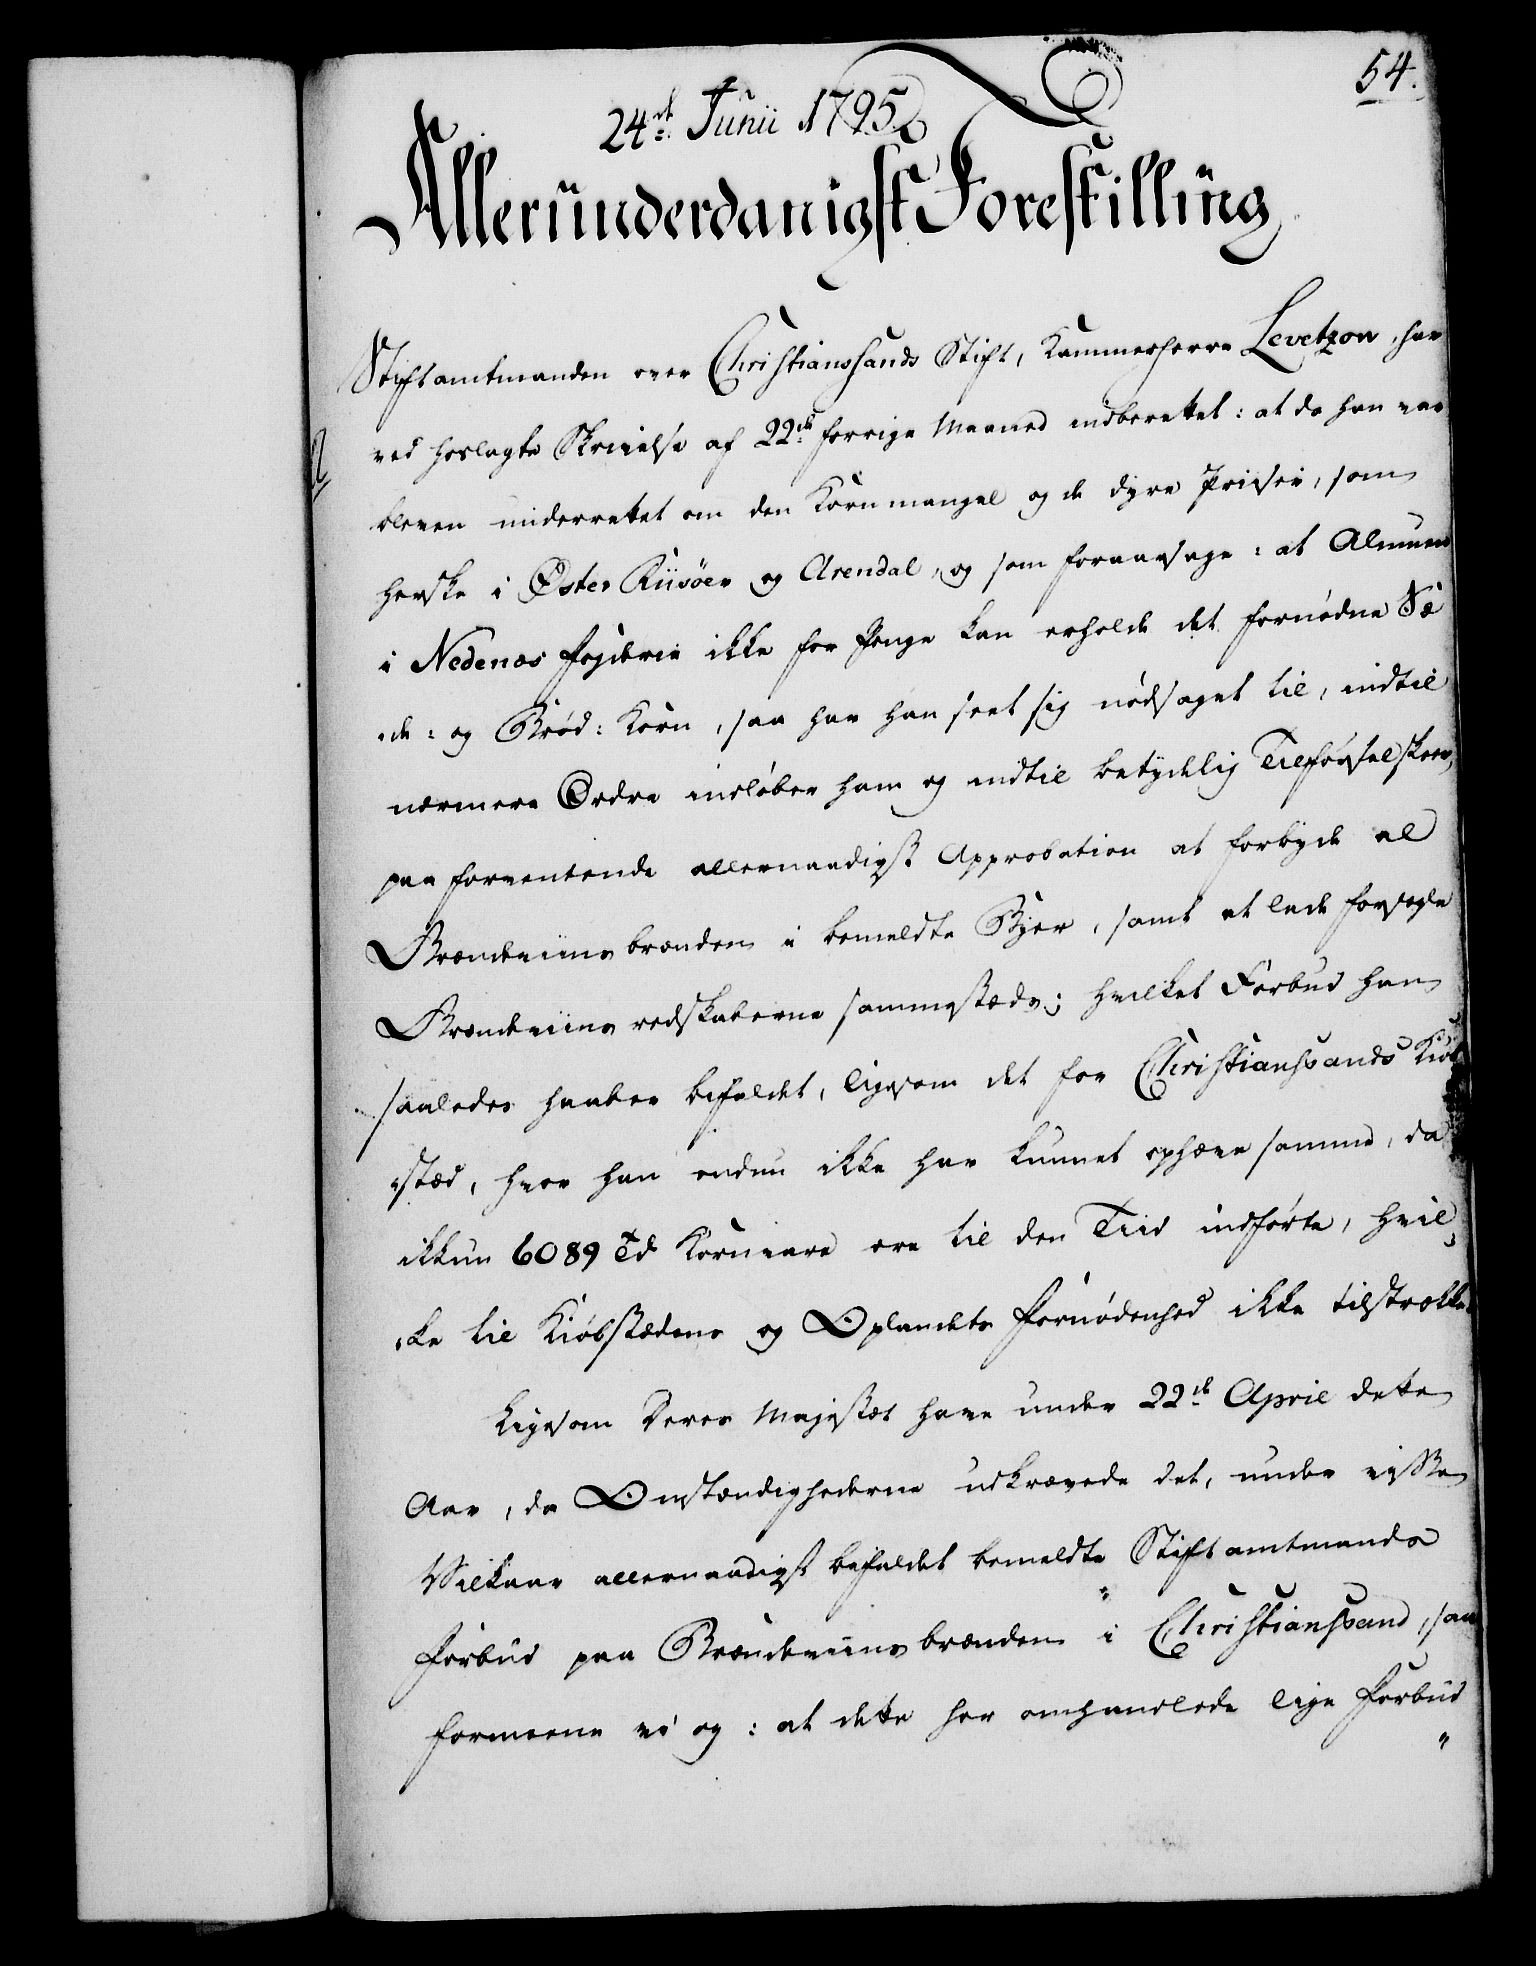 54.
24de Junii 1795
Alleründerdanigst Forestilling
Stiftamtmanden over Christianssands Stift, Kammerherre Levetzow, har
ved hoslagte Skrivelse af 22de forrige Maaned indberettet: at da han var
bleven underrettet om den Kornmangel og de dyre Priiser, som
herske i Øster Riisøer og Arendal, og som foraarsage: at Almuen
i Nedenæs Fogderie ikke for Penge kan erholde det fornødne Sæ
de: og Brød: Korn, saa har han seet sig nødsaget til, indtil
nærmere Ordre indløber ham og indtil betydelig Tilførsel skeer,
paa forventende allernaadigst Approbation at forbyde al
Brændeviinsbrænden i bemeldte Byer, samt at lade forsegle
Brændeviinsredskaberne sammestæds; hvilket Forbud han
saaledes haaber befalet, ligesom det for Christianssands Kiøb
stæd, hvor han endnu ikke har kunnet ophæve samme, da
ikkun 6089 Td Kornvare ere til den Tiid indførte, hvil
ke til Kiøbstædens og Oplandets Fornødenhed ikke tilstrække
Ligesom Deres Majestæt have under 22de April dette
Aar, da Omstændighederne udkrævede det, under visse
Vilkaar allernaadigst befalet bemeldte Stiftamtmands
Forbud paa Brændeviinsbrænden i Christianssand, saa
formeene vi og: at dette her omhandlede lige Forbud